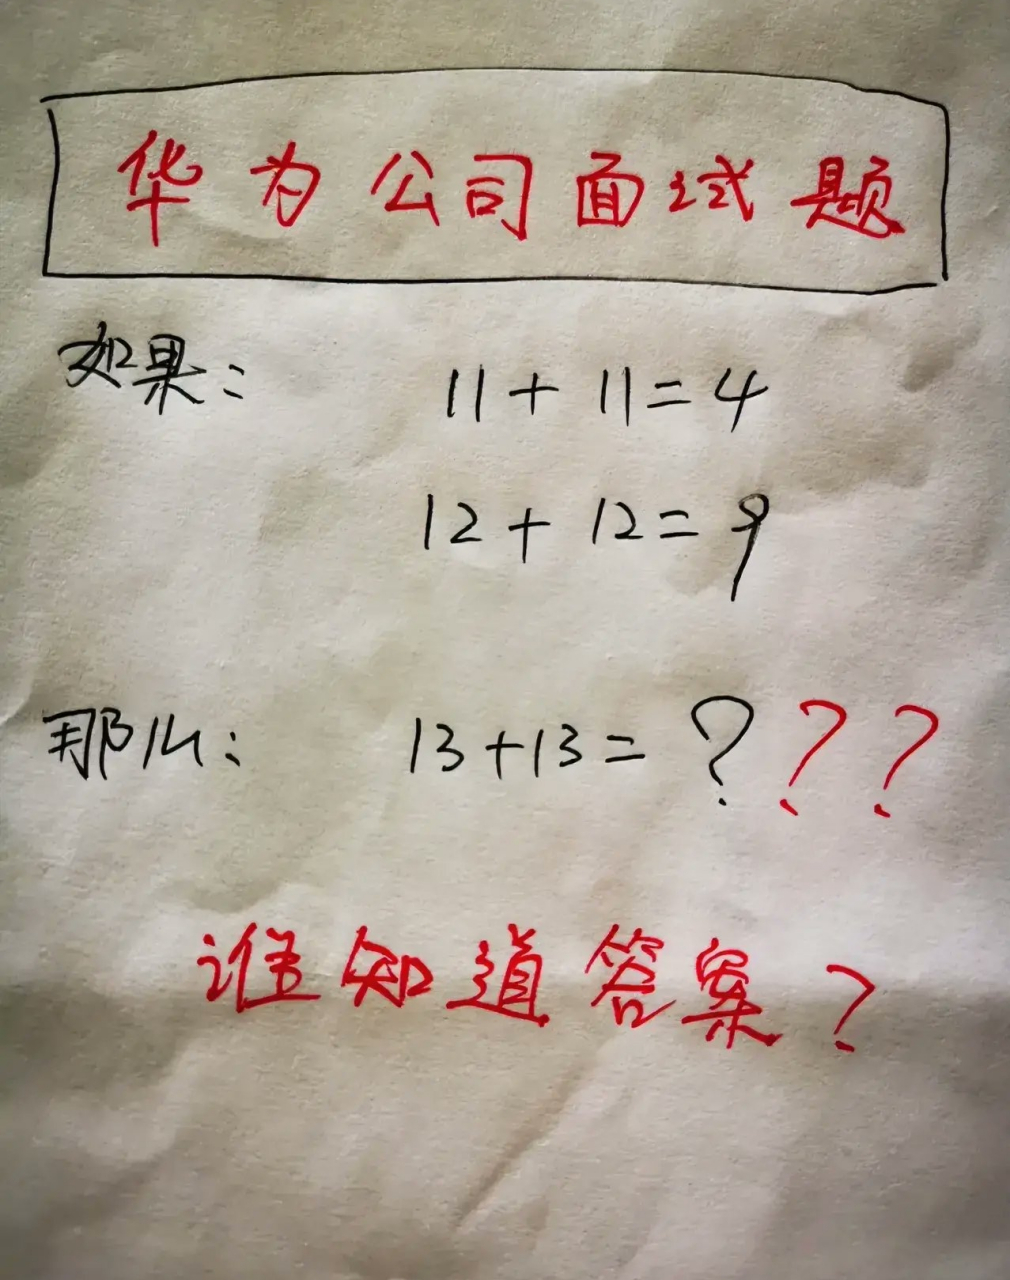 华为公司面试题
如果: 11+11=4
12+12=9
那么: 13+13=???
谁知道答案?